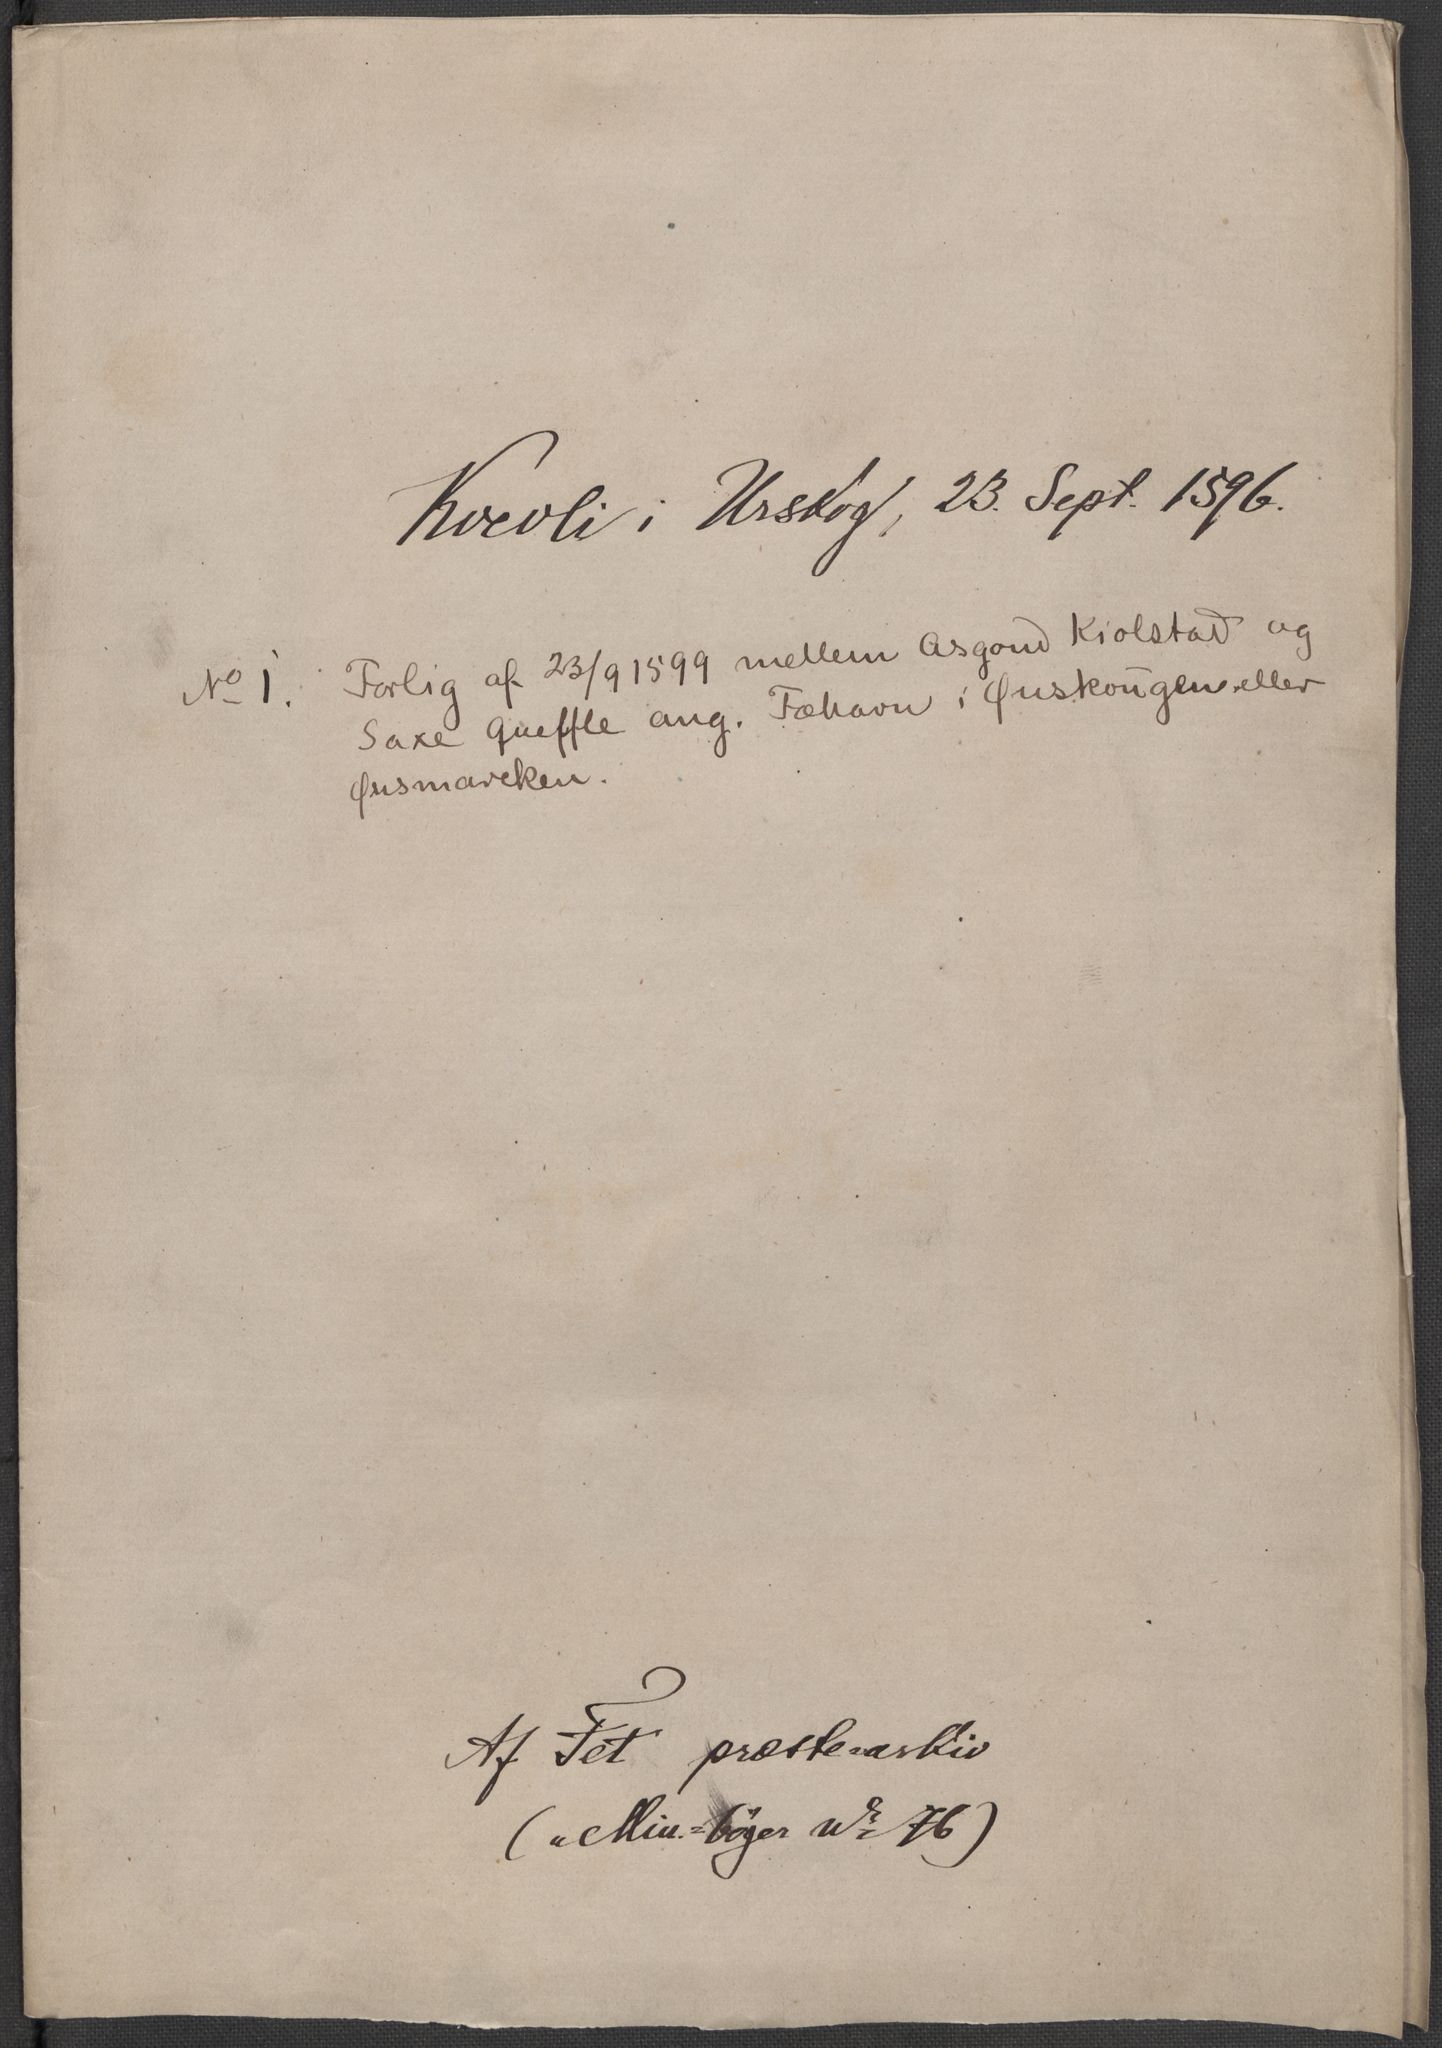 Kvevli i Urskog, 23. Sept. 1596.
No 1. Forlig af 23/9 1599 mellem Asgond Kiolstad og
Saxe Queffle ang. Fæhavn i Ønskougen eller
Ønsmarcken.
Af Fet præste-arkiv
("Min.=bøger Nr 76)